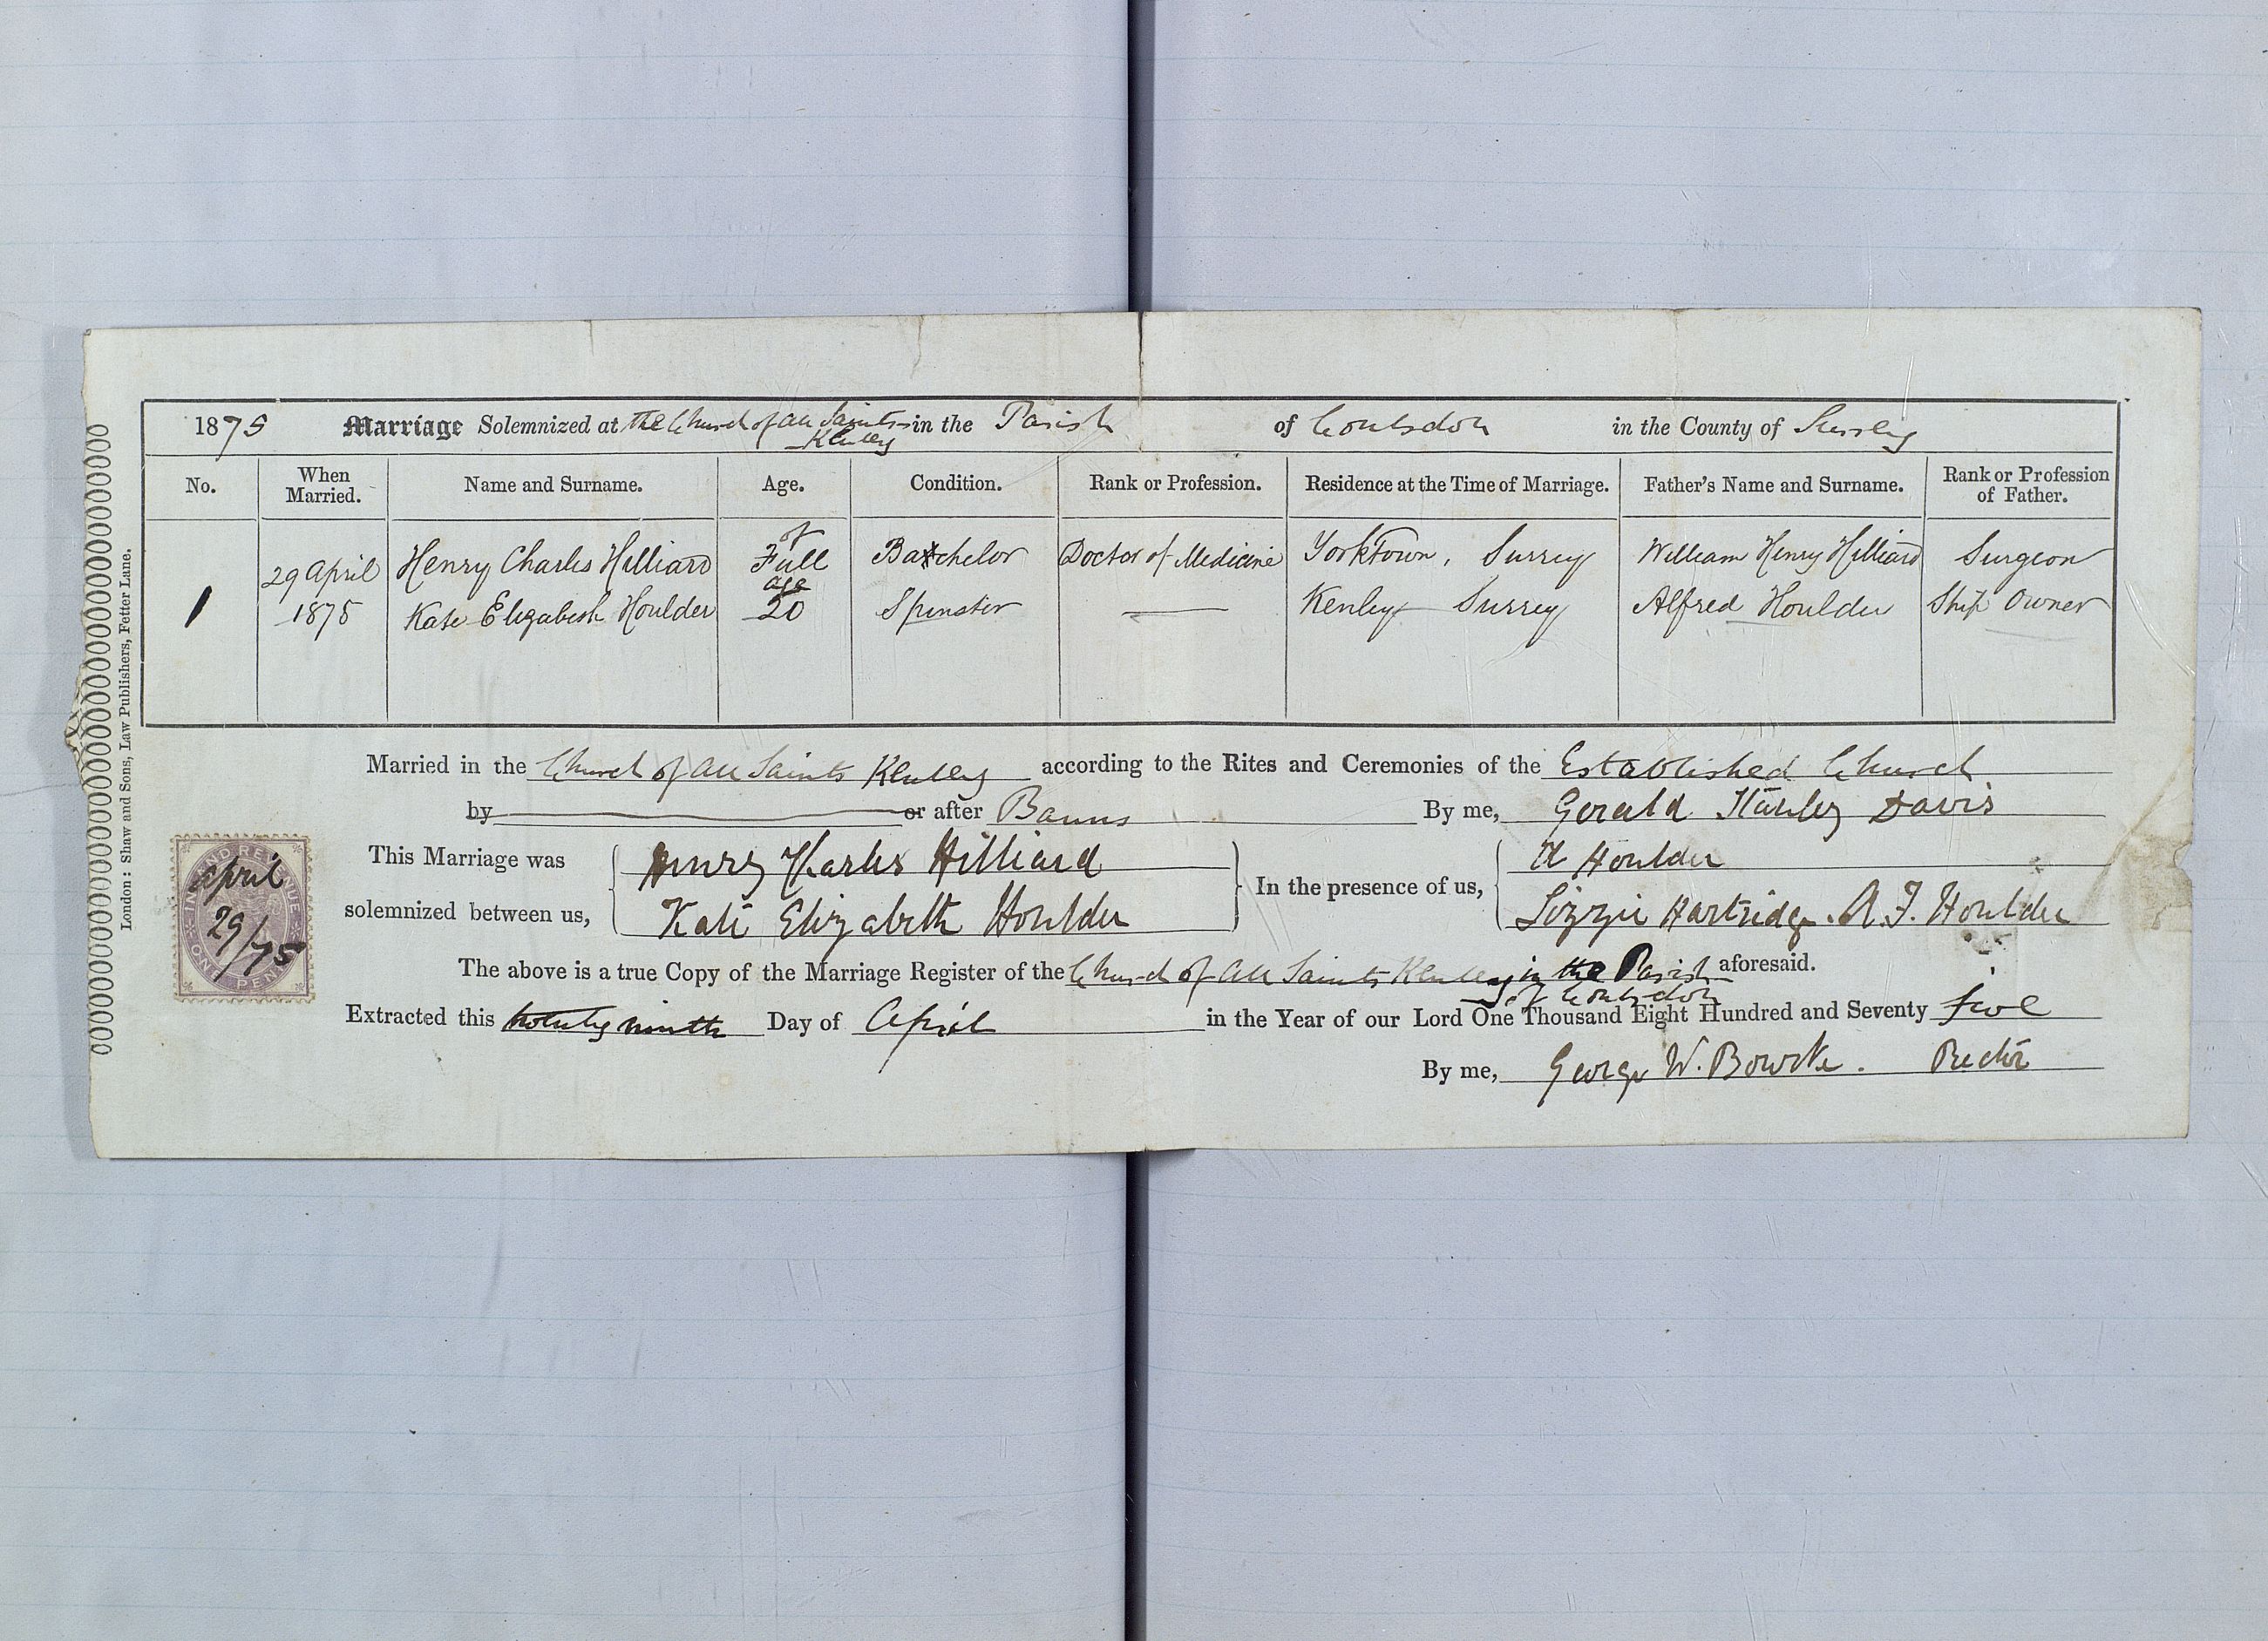 1875 Marriage Solemnized at the Church of All Saints Kenley in the Parish of Coulsdon in the County of Surrey
No. When Married. Name and Surname. Age. Condition. Rank or Profession. Residence at the Time of Marriage. Father's Name and Surname. Rank or Profession of Father.
1 29 April 1875 Henry Charles Hilliard of Full age Batchelor Doctor of Medicine YorkTown, Surrey William Henry Hilliard Surgeon
Kate Elizabeth Houlder 20 Spinster — Kenley Surrey Alfred Houlder Ship Owner
Married in the Church of All Saints Kenley according to the Rites and Ceremonies of the Established Church
by or after Banns By me, Gerald Stanley Davis
This Marriage was solemnized between us, Henry Charles Hilliard
Kate Elizabeth Houlder
In the presence of us, A Houlder
Lizzie Hartridge. A. F. Houlder
The above is a true Copy of the Marriage Register of the Church of All Saints Kenley in the Parish of Coulsdon aforesaid.
Extracted this twenty ninth Day of April in the Year of our Lord One Thousand Eight Hundred and Seventy five
By me, George W. Bourke. Rector
London: Shaw and Sons, Law Publishers, Fetter Lane.
INLAND REVENUE
ONE PENNY
April
29/75